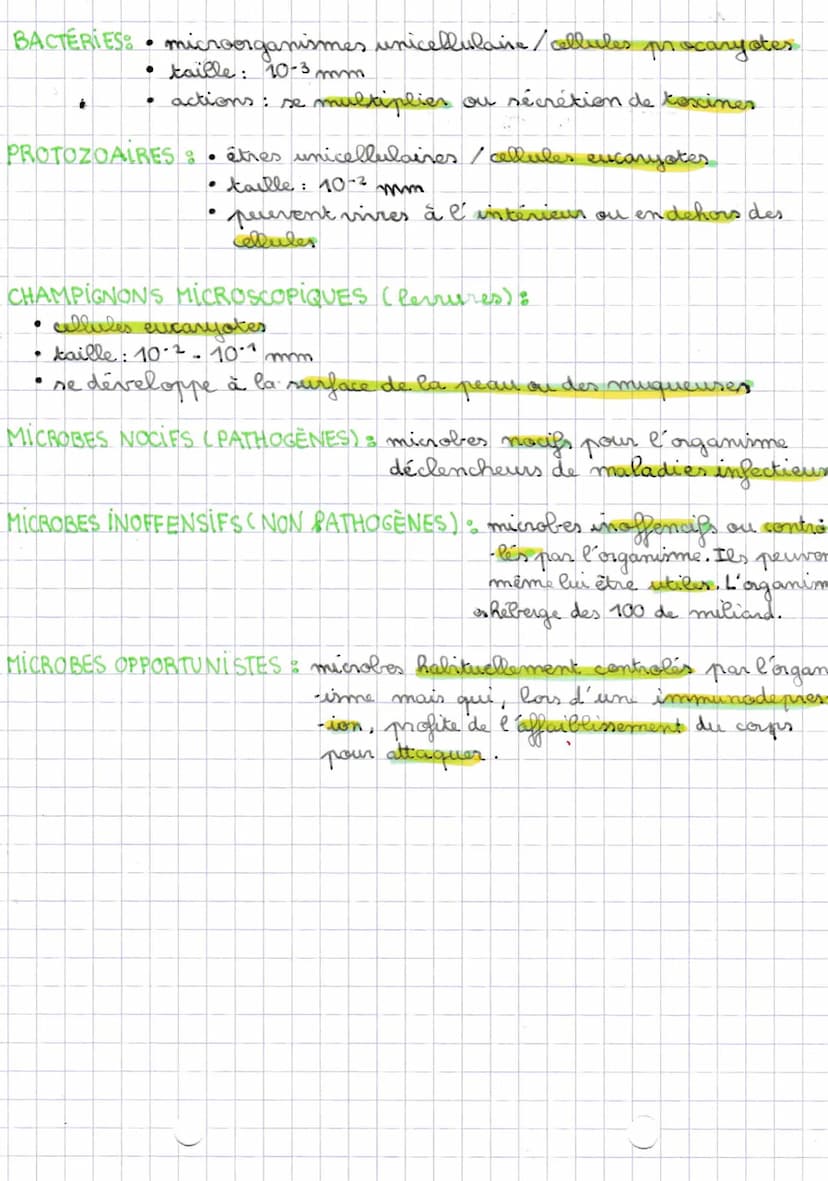 BACTÉRIES: • microorganismes unicellulaire / cellules procaryotes
• taille : 10-3 mm
• actions : se multiplier ou sécrétion de toxines
PROTOZOAIRES : • êtres unicellulaires / cellules eucaryotes
• taille : 10-2 mm
• peuvent vivres à l'intérieur ou en dehors des
cellules
CHAMPIGNONS MICROSCOPIQUES (levures) :
• cellules eucaryotes
• taille : 10-2 - 10-1 mm
• se développe à la surface de la peau ou des muqueuses
MICROBES NOCIFS (PATHOGÈNES) : microbes nocifs pour l'organisme
déclencheurs de maladies infectieus
MICROBES INOFFENSIFS (NON PATHOGÈNES) : microbes inoffensifs ou contrô
-lés par l'organisme. Ils peuven
même lui être utiles. L'organism
héberge des 100 de miliard.
MICROBES OPPORTUNISTES : microbes habituellement controlés par l'organ
-isme mais qui, lors d'une immunodepres
-ion, profite de l'affaiblissement du corps
pour attaquer.